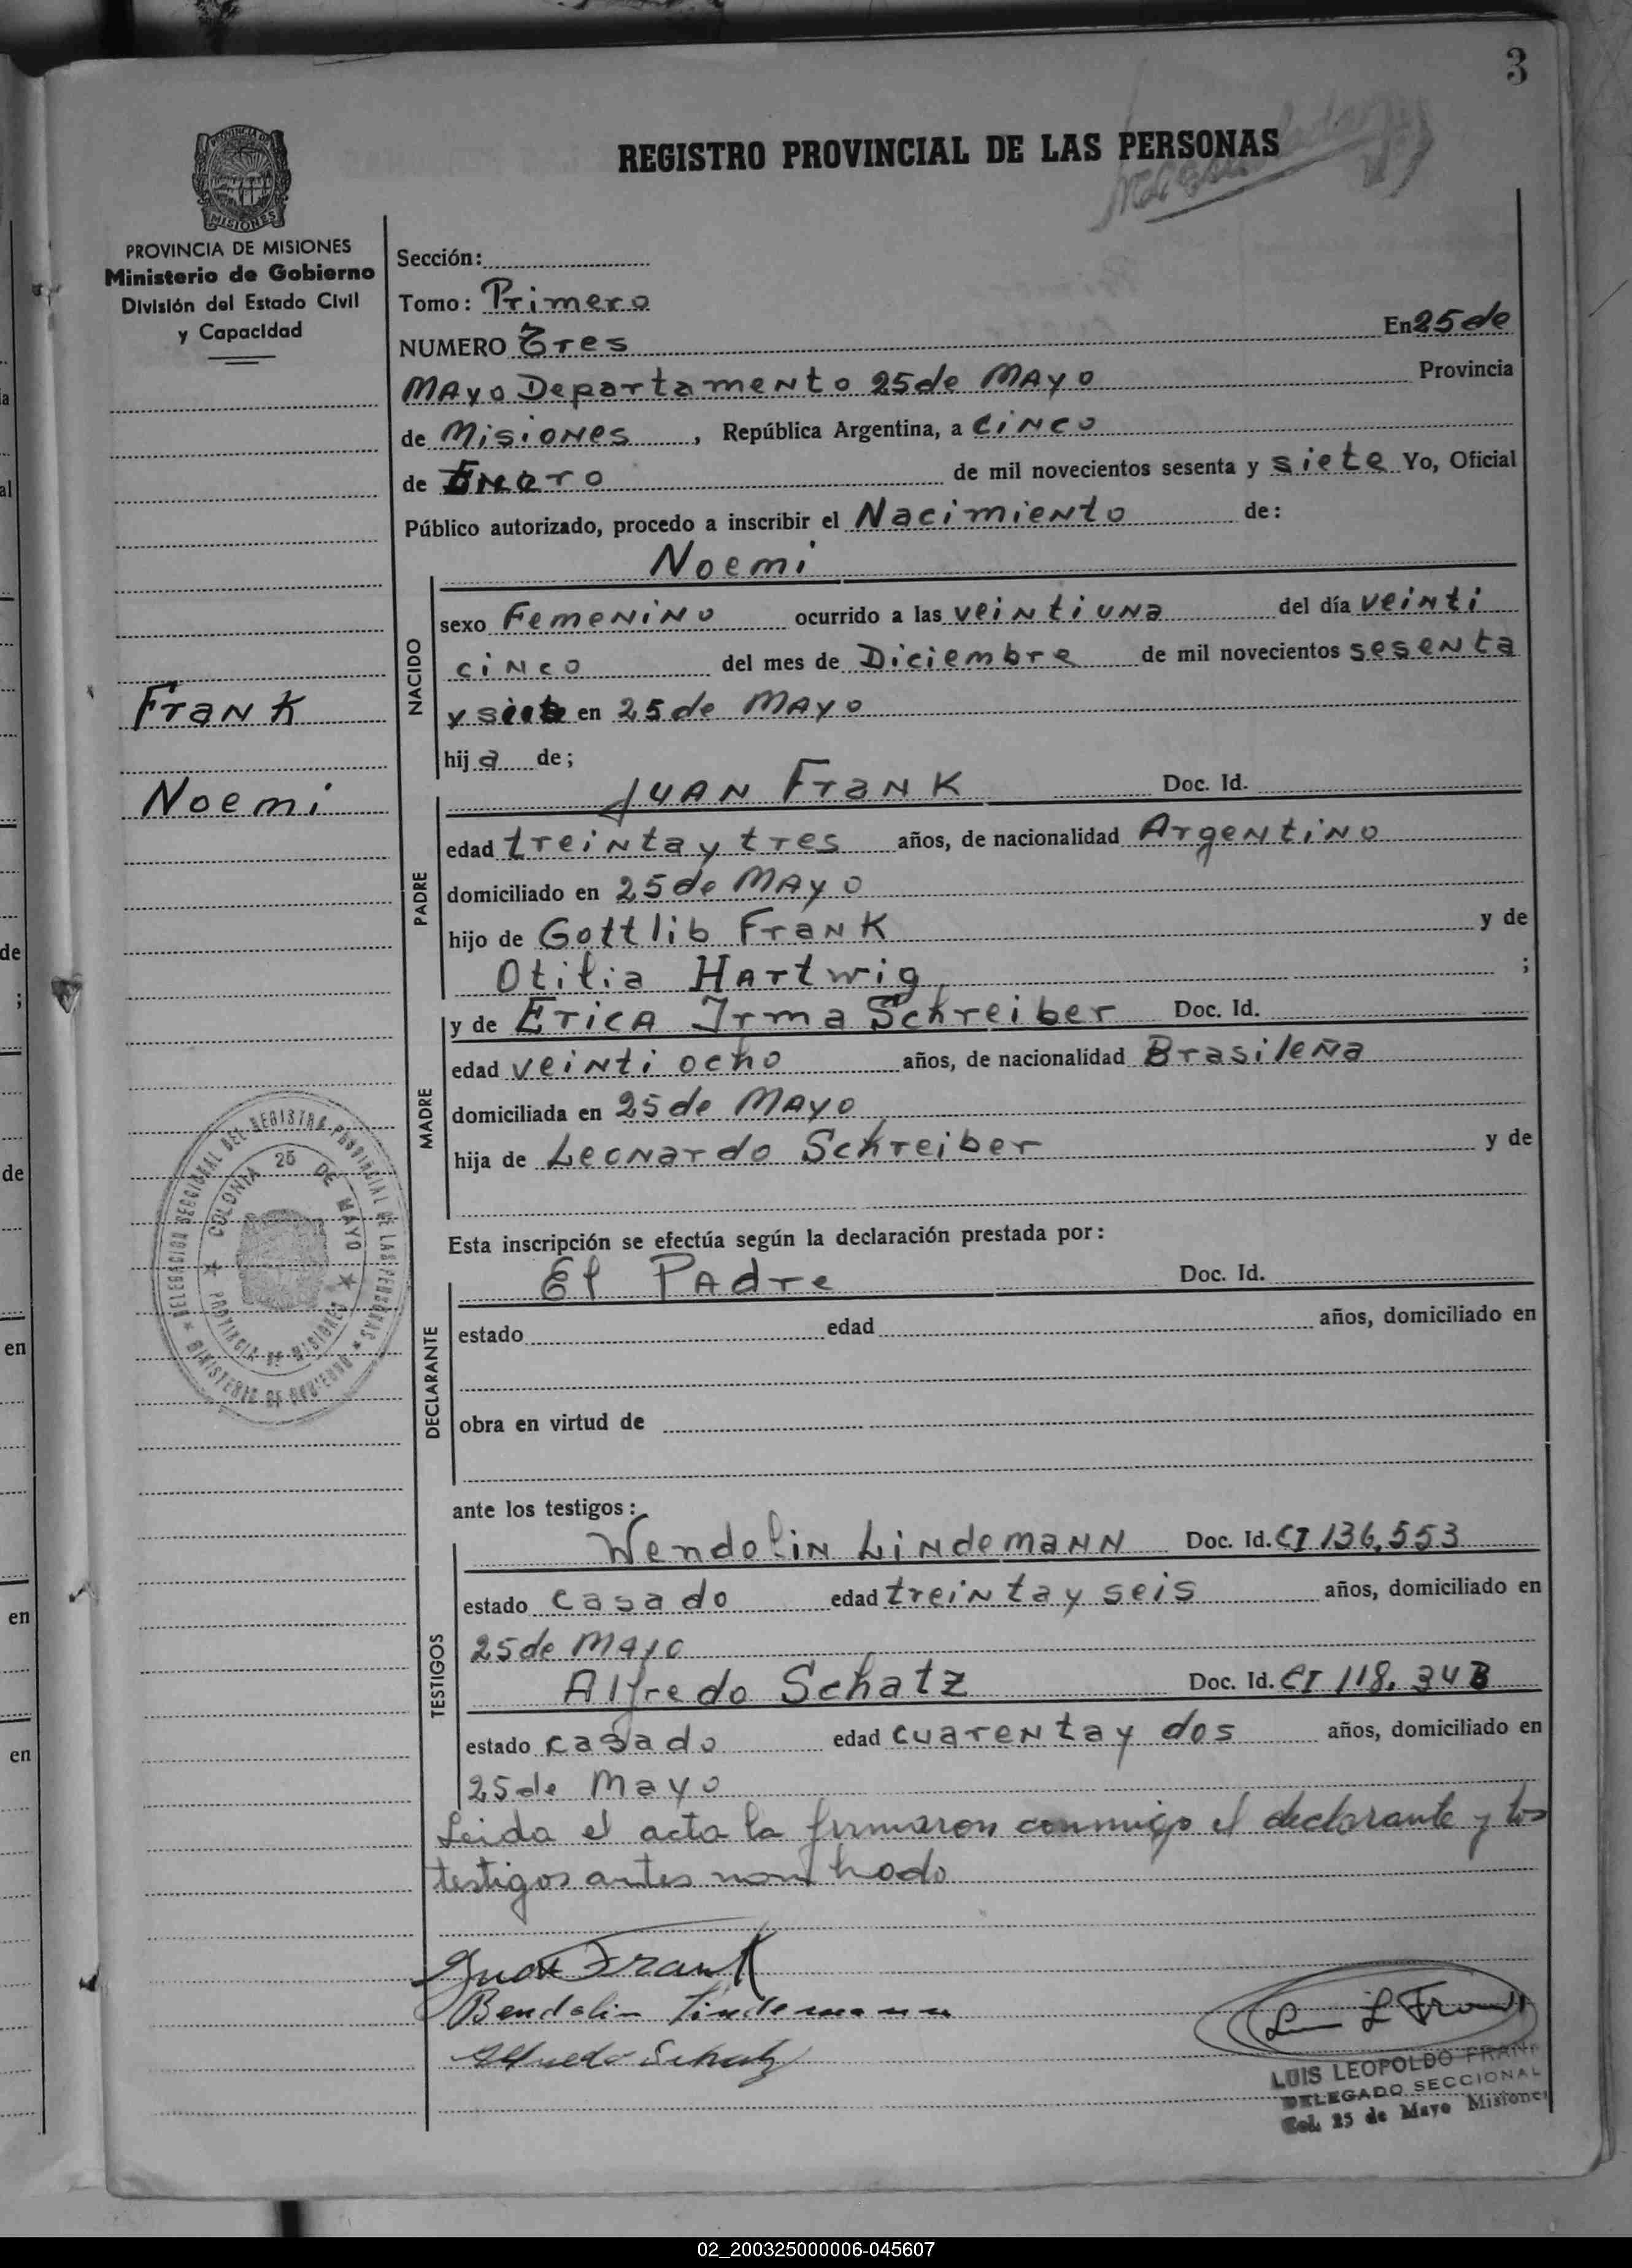 3
REGISTRO PROVINCIAL DE LAS PERSONAS
PROVINCIA DE
MISIONES
PROVINCIA DE MISIONES
Ministerio de Gobierno
División del Estado Civil
y Capacidad
Sección:
Tomo: Primero
NUMERO Tres En 25 de
Mayo Departamento 25 de Mayo Provincia
de Misiones, República Argentina, a Cinco
de Enero de mil novecientos sesenta y siete Yo, Oficial
Público autorizado, procedo a inscribir el Nacimiento de:
Noemi
NACIDO
sexo Femenino ocurrido a las veintiuna del día veinti
cinco del mes de Diciembre de mil novecientos sesenta
y siete en 25 de Mayo
hija de;
Frank
Noemi
PADRE
Juan Frank Doc. Id.
edad treinta y tres años, de nacionalidad Argentino
domiciliado en 25 de Mayo
hijo de Gottlib Frank y de
Otilia Hartwig ;
MADRE
y de Erica Irma Schreiber Doc. Id.
edad veinti ocho años, de nacionalidad Brasileña
domiciliada en 25 de Mayo
hija de Leonardo Schreiber y de
DELEGACION SECCIONAL DEL REGISTRO PROVINCIAL DE LAS PERSONAS
MINISTERIO DE GOBIERNO
COLONIA 25 DE MAYO
PROVINCIA DE MISIONES
Esta inscripción se efectúa según la declaración prestada por:
DECLARANTE
El Padre Doc. Id.
estado edad años, domiciliado en
obra en virtud de
ante los testigos:
TESTIGOS
Wendolin Lindemann Doc. Id. CI 136,553
estado casado edad treinta y seis años, domiciliado en
25 de Mayo
Alfredo Schatz Doc. Id. CI 118.
estado casado edad cuarenta y dos años, domiciliado en
25 de Mayo
Leida el acta la firmaron conmigo el declarante y los
testigos antes nombrado
Juan Frank
Bendolin Lindemann
Alfredo Schatz
L L Frank
LUIS LEOPOLDO FRANK
DELEGADO SECCIONAL
Col. 25 de Mayo Misiones
de
;
de
en
en
en
02_200325000006-045607